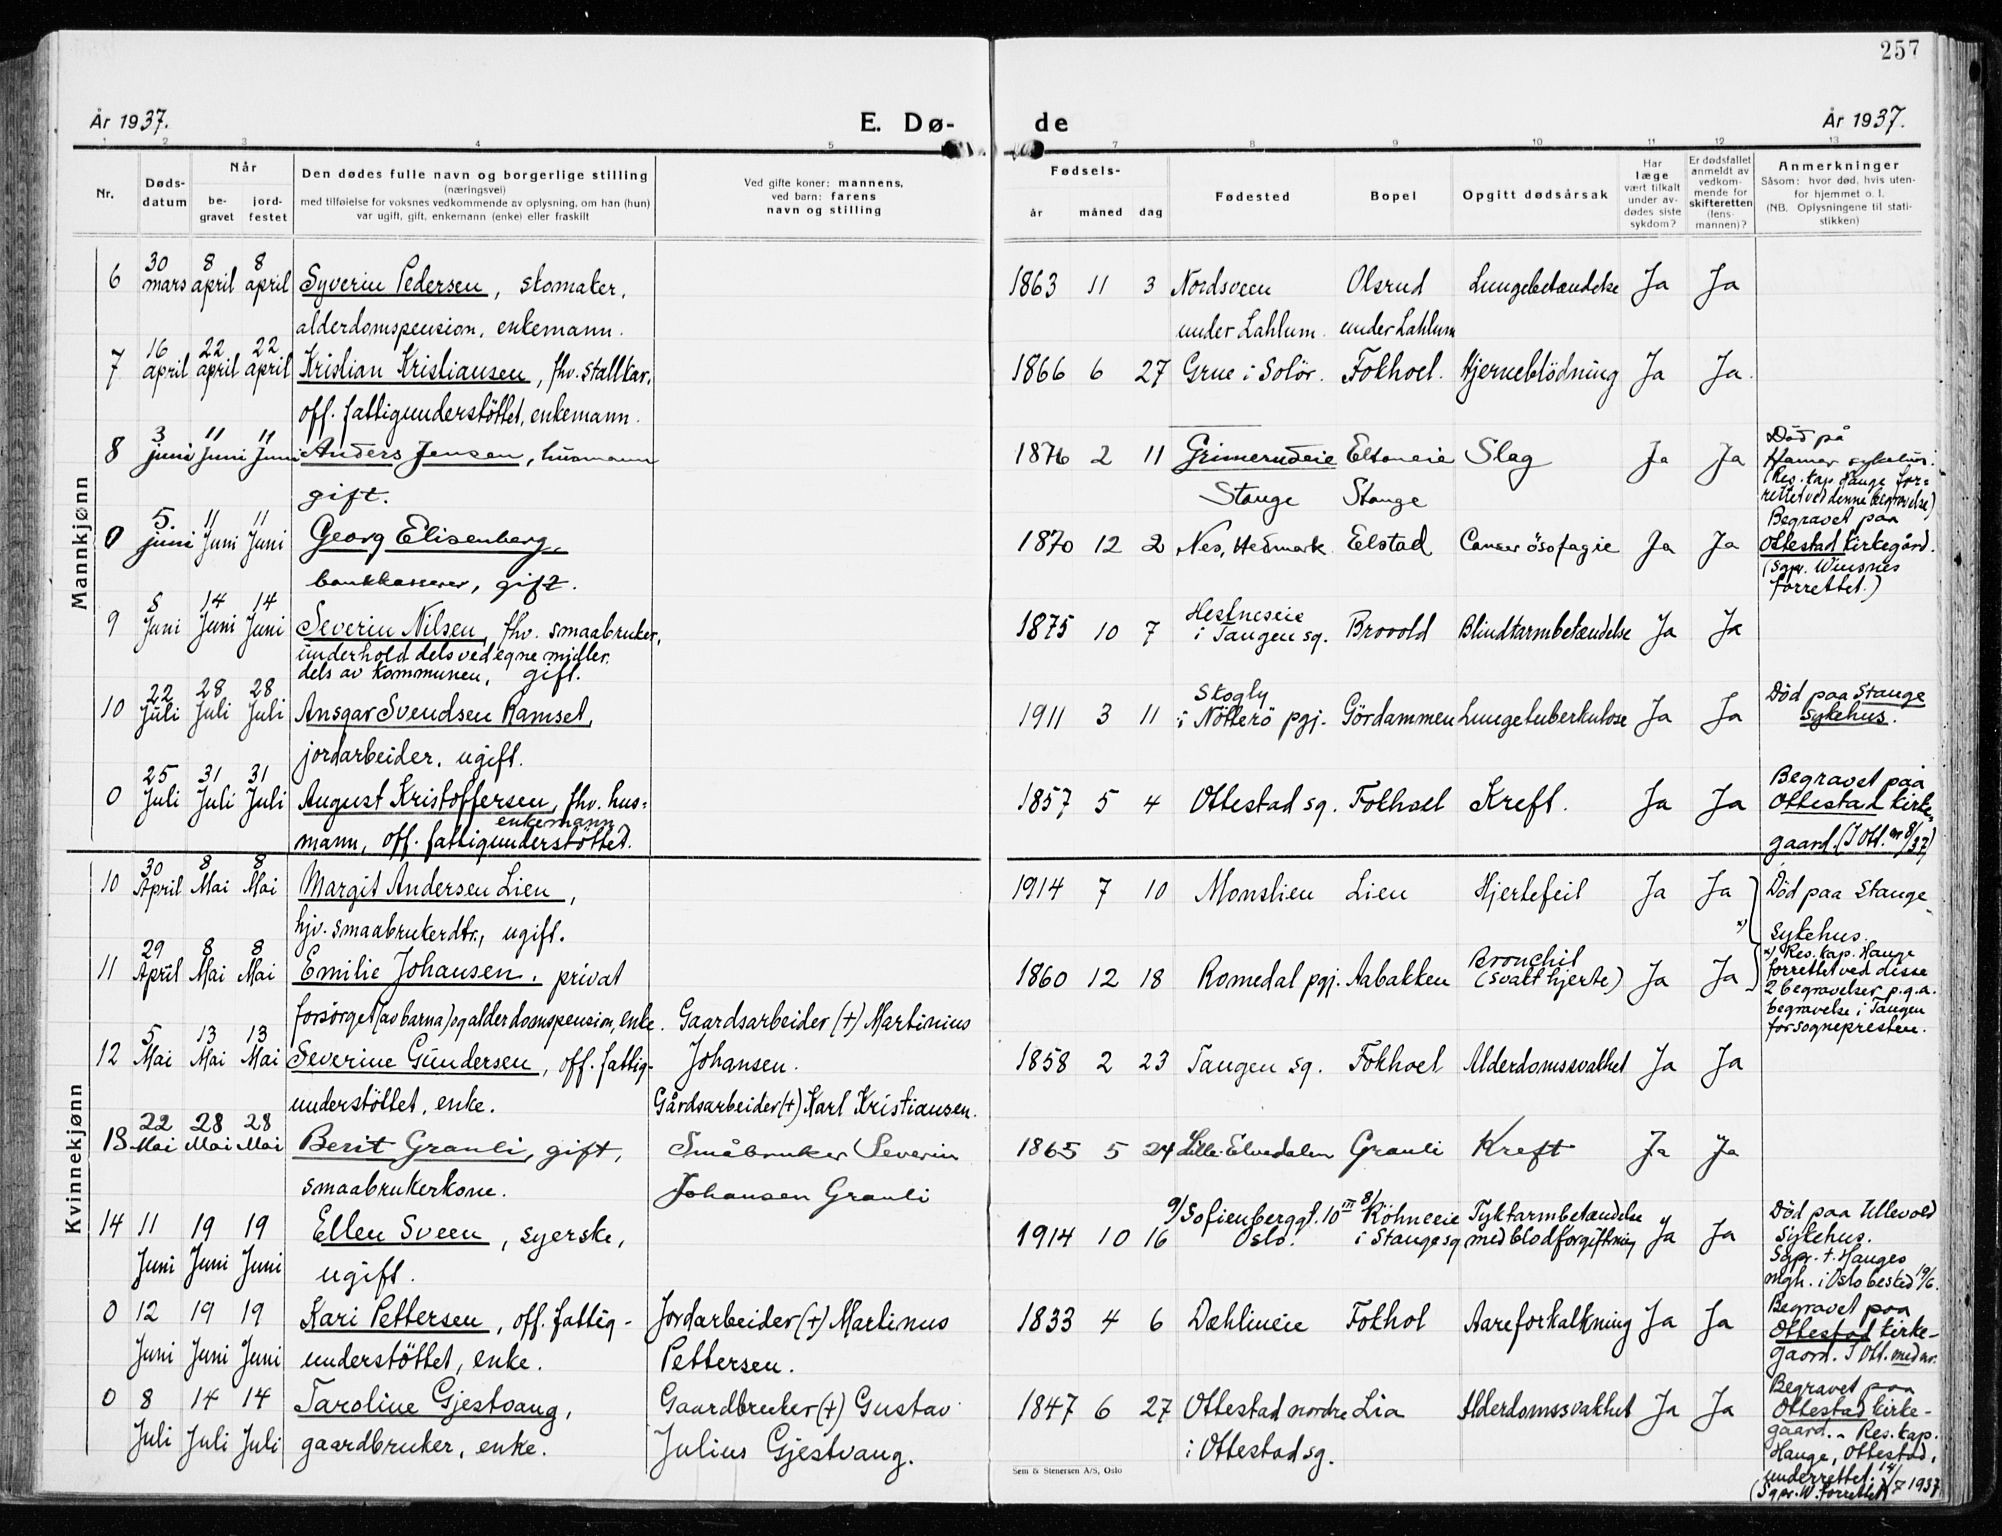 257
År 1937.
E. Dø-
de
År 1937.
1 2 3 4 5 7 8 9 10 11 12 13
Nr.
Døds-
datum
Når
be-
gravet
jord-
festet
Den dødes fulle navn og borgerlige stilling
(næringsvei)
med tilføielse for voksnes vedkommende av oplysning, om han (hun)
var ugift, gift, enkemann (enke) eller fraskilt
Ved gifte koner: mannens,
ved barn: farens
navn og stilling
Fødsels-
år måned dag
Fødested
Bopel
Opgitt dødsårsak
Har
læge
vært tilkalt
under av-
dødes siste
sykdom?
Er dødsfallet
anmeldt av
vedkom-
mende for
skifteretten
(lens-
mannen)?
Anmerkninger
Såsom: hvor død, hvis uten-
for hjemmet o. l.
(NB. Oplysningene til stati-
stikken)
Mannkjønn
30 8 8
6 mars april april Syverin Pedersen, skomaker, 1863 11 3 Nordsveen Olsrud Lungebetændelse Ja Ja
alderdomspension, enkemann. under Lahlum. under Lahlum
16 22 22
7 april april april Kristian Kristiansen, fhv. stallkar, 1866 6 27 Grue i Solör. Fokhoel. Hjerneblödning Ja Ja.
off. fattigunderstöttet, enkemann.
3 11 11
8 juni Juni Juni Anders Jensen, husmann 1876 2 11 Grimerudeie Eltoneie Slag Ja Ja
gift. Stange Stange
Död på
Hamar sykehus.
(Res. kap. Hauge for-
rettet ved denne begravelse)
5. 11 11
0 juni Juni Juni Georg Elisenberg, 1870 12 2 Nes, Hedmark Elstad Canser ösofagie Ja Ja
bankkasserer, gift.
Begravet paa
Ottestad kirkegård.
(Sgpr. Winsnes
forrettet.)
5 14 14
9 Juni Juni Juni Severin Nilsen, fhv. smaabruker, 1875 10 7 Hestneseie
i Tangen sg. Brovold Blindtarmbetændelse Ja Ja
underhold dels ved egne midler.
dels av kommunen, gift.
22 28 28
10 Juli Juli Juli Ansgar Svendsen Ramset, 1911 3 11 Skogly
i Nötterö pgj. Gördammen Lungetuberkulose Ja Ja
jordarbeider, ugift.
Död paa Stange
Sykehus.
25 31 31
0 Juli Juli Juli August Kristoffersen, fhv. hus- 1857 5 4 Ottestad sg. Fokhoel Kreft. Ja Ja
enkemann
mann, off. fattigunderstöttet.
Begravet paa
Ottestad kirke-
gaard. (I Ott. m 8/37)
Kvinnekjønn
30 8 8
10 April Mai Mai Margit Andersen Lien, 1914 7 10 Monslien Lien Hjertefeil Ja Ja
hjv. smaabrukerdtr., ugift.
Död paa Stange
Sykehus.
29 8 8
11 April Mai Mai Emilie Johansen. privat 1860 12 18 Romedal pgj. Aabakken Bronchit
(svakt hjerte) Ja Ja
forsörget (av barna) og alderdomspension, enke. Gaardsarbeider (+) Martinius
Johansen.
x) Res. kap. Hauge
forrettet ved disse
2 begravelser p.g.a.
begravelse i Tangen
for sognepresten.
5 13 13
12 Mai Mai Mai Severine Gundersen, off. fattig- 1858 2 23 Tangen sg. Fokhoel Alderdomssvakhet Ja Ja
understöttet, enke. Gårdsarbeider (+) Karl Kristiansen.
22 28 28
13 Mai Mai Mai Berit Granli, gift, Småbruker Severin 1865 5 24 Lille-Elvedalen Granli Kreft Ja Ja
smaabrukerkone. Johansen Granli
14 11 19 19 Ellen Sveen, syerske, 1914 10 16 9/ Sofienberggt. 10 III
Oslo. 8/ Köhneeie
i Stange sg Tyktarmbetændelse
med blodforgiftning Ja Ja
Juni Juni Juni ugift.
Död paa Ullevold
Sykehus.
Sgpr. + Hauges
mgh. i Oslo bested 19/6.
0 12 19 19 Kari Pettersen, off. fattig- Jordarbeider (+) Martinus 1833 4 6 Dæhlineie Fokhol Aareforkalkning Ja Ja
Juni Juni Juni understöttet, enke. Pettersen.
Begravet paa
Ottestad kirke-
gaard. I Ott. med nr.
0 8 14 14 Taroline Gjestvang, Gaardbruker (+) Gustav 1847 6 27 Ottestad nordre Lia Alderdomssvakhet Ja Ja
Juli Juli Juli gaardbruker, enke. Julius Gjestvang. i Ottestad sg.
Begravet paa
Ottestad kirke-
gaard. - Res. kap.
Hauge, Ottestad,
underrettet. 14/7 1937
(Sgpr. W. forrettet)
Sem & Stenersen A/S, Oslo